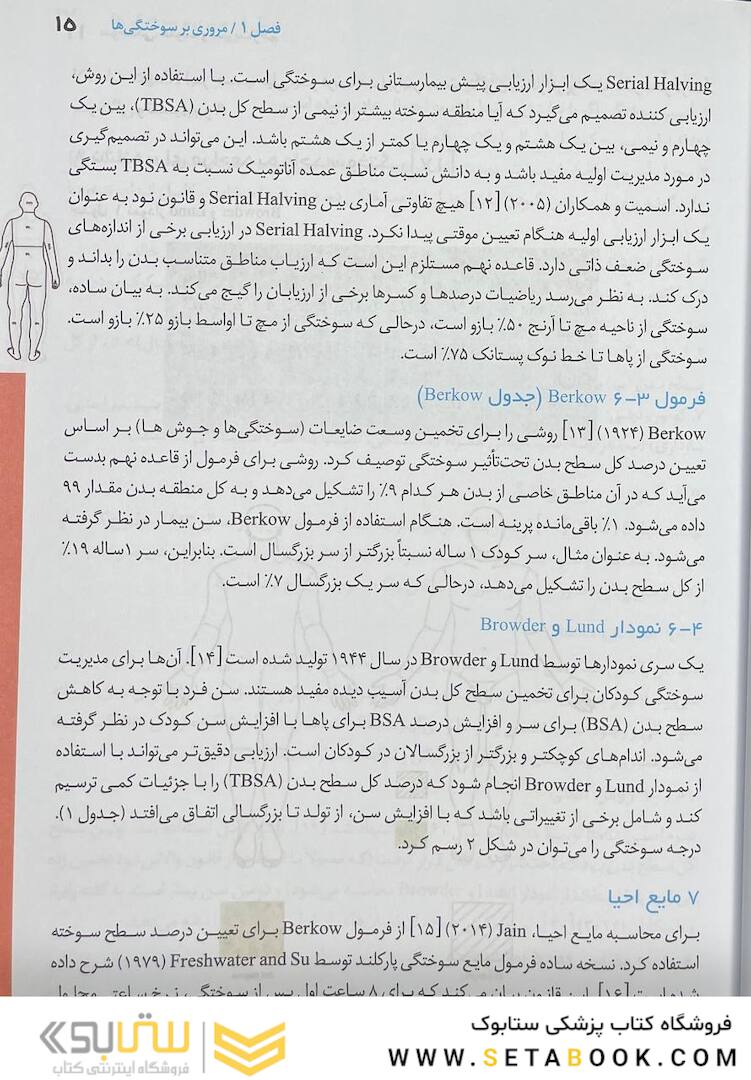 فصل ۱ / مروری بر سوختگی‌ها ۱۵
Serial Halving یک ابزار ارزیابی پیش بیمارستانی برای سوختگی است. با استفاده از این روش،
ارزیابی کننده تصمیم می‌گیرد که آیا منطقه سوخته بیشتر از نیمی از سطح کل بدن (TBSA)، بین یک
چهارم و نیمی، بین یک هشتم و یک چهارم یا کمتر از یک هشتم باشد. این می‌تواند در تصمیم‌گیری
در مورد مدیریت اولیه مفید باشد و به دانش نسبت مناطق عمده آناتومیک نسبت به TBSA بستگی
ندارد. اسمیت و همکاران (۲۰۰۵) [۱۲] هیچ تفاوتی آماری بین Serial Halving و قانون نود به عنوان
یک ابزار ارزیابی اولیه هنگام تعیین موقتی پیدا نکرد. Serial Halving در ارزیابی برخی از اندازه‌های
سوختگی ضعف ذاتی دارد. قاعده نهم مستلزم این است که ارزیاب مناطق متناسب بدن را بداند و
درک کند. به نظر می‌رسد ریاضیات درصدها و کسرها برخی از ارزیابان را گیج می‌کند. به بیان ساده،
سوختگی از ناحیه مچ تا آرنج ۵۰٪ بازو است، درحالی که سوختگی از مچ تا اواسط بازو ۲۵٪ بازو است.
سوختگی از پاها تا خط نوک پستانک ۷۵٪ است.
۶-۳ فرمول Berkow (جدول Berkow)
Berkow (۱۹۲۴) [۱۳] روشی را برای تخمین وسعت ضایعات (سوختگی‌ها و جوش ها) بر اساس
تعیین درصد کل سطح بدن تحت‌تأثیر سوختگی توصیف کرد. روشی برای فرمول از قاعده نهم بدست
می‌آید که در آن مناطق خاصی از بدن هر کدام ۹٪ را تشکیل می‌دهد و به کل منطقه بدن مقدار ۹۹
داده می‌شود. ۱٪ باقی‌مانده پرینه است. هنگام استفاده از فرمول Berkow، سن بیمار در نظر گرفته
می‌شود. به عنوان مثال، سر کودک ۱ ساله نسبتاً بزرگتر از سر بزرگسال است. بنابراین، سر ۱ساله ۱۹٪
از کل سطح بدن را تشکیل می‌دهد، درحالی که سر یک بزرگسال ۷٪ است.
۶-۴ نمودار Lund و Browder
یک سری نمودارها توسط Lund و Browder در سال ۱۹۴۴ تولید شده است [۱۴]. آن‌ها برای مدیریت
سوختگی کودکان برای تخمین سطح کل بدن آسیب دیده مفید هستند. سن فرد با توجه به کاهش
سطح بدن (BSA) برای سر و افزایش درصد BSA برای پاها با افزایش سن کودک در نظر گرفته
می‌شود. اندام‌های کوچکتر و بزرگتر از بزرگسالان در کودکان است. ارزیابی دقیق‌تر می‌تواند با استفاده
از نمودار Lund و Browder انجام شود که درصد کل سطح بدن (TBSA) را با جزئیات کمی ترسیم
کند و شامل برخی از تغییراتی باشد که با افزایش سن، از تولد تا بزرگسالی اتفاق می‌افتد (جدول ۱).
درجه سوختگی را می‌توان در شکل ۲ رسم کرد.
۷ مایع احیا
برای محاسبه مایع احیا، Jain (۲۰۱۴) [۱۵] از فرمول Berkow برای تعیین درصد سطح سوخته
استفاده کرد. نسخه ساده فرمول مایع سوختگی پارکلند توسط Freshwater and Su (۱۹۷۹) شرح داده
فروشگاه کتاب پزشکی ستابوک
WWW.SETABOOK.COM
ستابوک
فروشگاه اینترنتی کتاب